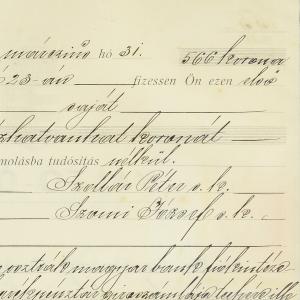 március hó 31. 566 korona
23-án fizessen Ön ezen első
saját
hatvanhat koronát
molásba tudósítás nélkül.
Szollár Péter s. k.
Szomi József s. k.
osztrák magyar bank fiókintéze